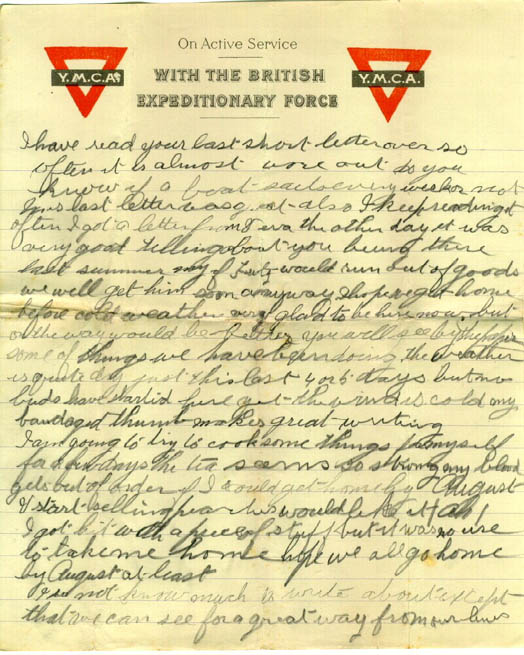 On Active Service
Y.M.C.A. WITH THE BRITISH Y.M.C.A.
EXPEDITIONARY FORCE
I have read your last short letter over so
often it is almost wore out do you
know if a boat sails every week or not
last letter was also I keep reading it
often I got a letter from the other day it was
very good telling about you being there
last summer my would run out of goods
we well get him soon anyway I hope we get home
before cold weather very glad to be here now but
on the way would be better you will see by the
some of things we have been doing the weather
is quite dry just this last 4 or 5 days but no
buds have started here yet the wind is cold my
bandaged thumb makes great writing
I am going to try to cook some things for myself
for a few days the tea seems so strong my blood
gets out of order if I could get home by August
& start selling would like it ah!
I got hit with a piece of stuff but it was no use
to take me home hope we all go home
by August at least
I do not know much to write about except
that we can see for a great way from our lines